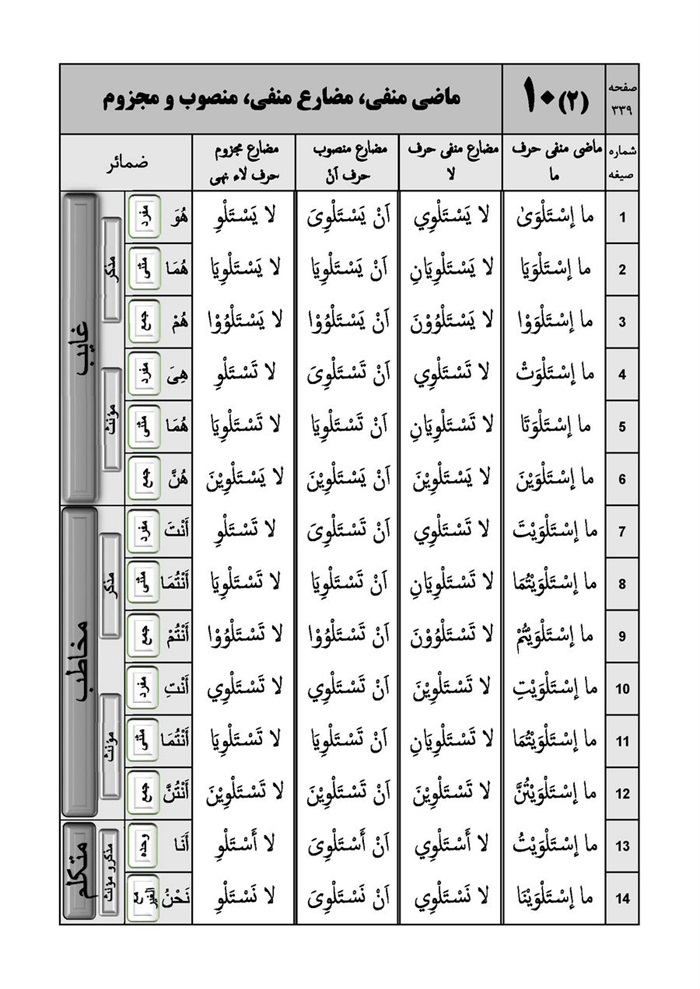 صفحه ۳۳۹ ۱۰(۲) ماضی منفی، مضارع منفی، منصوب و مجزوم
شماره صیغه ماضی منفی حرف ما مضارع منفی حرف لا مضارع منصوب حرف اَنْ مضارع مجزوم حرف لاء نهی ضمائر
1 ما إسْتَلْوَىٰ لا يَسْتَلْوِي اَنْ يَسْتَلْوِىَ لا يَسْتَلْوِ هُوَ مفرد مذکر غایب
2 ما إسْتَلْوَيَا لا يَسْتَلْوِيَانِ اَنْ يَسْتَلْوِيَا لا يَسْتَلْوِيَا هُمَا مثنی
3 ما إسْتَلْوَوْا لا يَسْتَلْوُوْنَ اَنْ يَسْتَلْوُوْا لا يَسْتَلْوُوْا هُمْ جمع
4 ما إسْتَلْوَتْ لا تَسْتَلْوِي اَنْ تَسْتَلْوِىَ لا تَسْتَلْوِ هِىَ مفرد مؤنث
5 ما إسْتَلْوَتَا لا تَسْتَلْوِيَانِ اَنْ تَسْتَلْوِيَا لا تَسْتَلْوِيَا هُمَا مثنی
6 ما إسْتَلْوَيْنَ لا يَسْتَلْوِيْنَ اَنْ يَسْتَلْوِيْنَ لا يَسْتَلْوِيْنَ هُنَّ جمع
7 ما إسْتَلْوَيْتَ لا تَسْتَلْوِي اَنْ تَسْتَلْوِىَ لا تَسْتَلْوِ أَنْتَ مفرد مذکر مخاطب
8 ما إسْتَلْوَيْتُمَا لا تَسْتَلْوِيَانِ اَنْ تَسْتَلْوِيَا لا تَسْتَلْوِيَا أَنْتُمَا مثنی
9 ما إسْتَلْوَيْتُمْ لا تَسْتَلْوُوْنَ اَنْ تَسْتَلْوُوْا لا تَسْتَلْوُوْا أَنْتُمْ جمع
10 ما إسْتَلْوَيْتِ لا تَسْتَلْوِيْنَ اَنْ تَسْتَلْوِي لا تَسْتَلْوِي أَنْتِ مفرد مؤنث
11 ما إسْتَلْوَيْتُمَا لا تَسْتَلْوِيَانِ اَنْ تَسْتَلْوِيَا لا تَسْتَلْوِيَا أَنْتُمَا مثنی
12 ما إسْتَلْوَيْتُنَّ لا تَسْتَلْوِيْنَ اَنْ تَسْتَلْوِيْنَ لا تَسْتَلْوِيْنَ أَنْتُنَّ جمع
13 ما إسْتَلْوَيْتُ لا أَسْتَلْوِي اَنْ أَسْتَلْوِىَ لا أَسْتَلْوِ أَنَا وحده مذکر و مؤنث متکلم
14 ما إسْتَلْوَيْنَا لا نَسْتَلْوِي اَنْ نَسْتَلْوِىَ لا نَسْتَلْوِ نَحْنُ مع الغیر